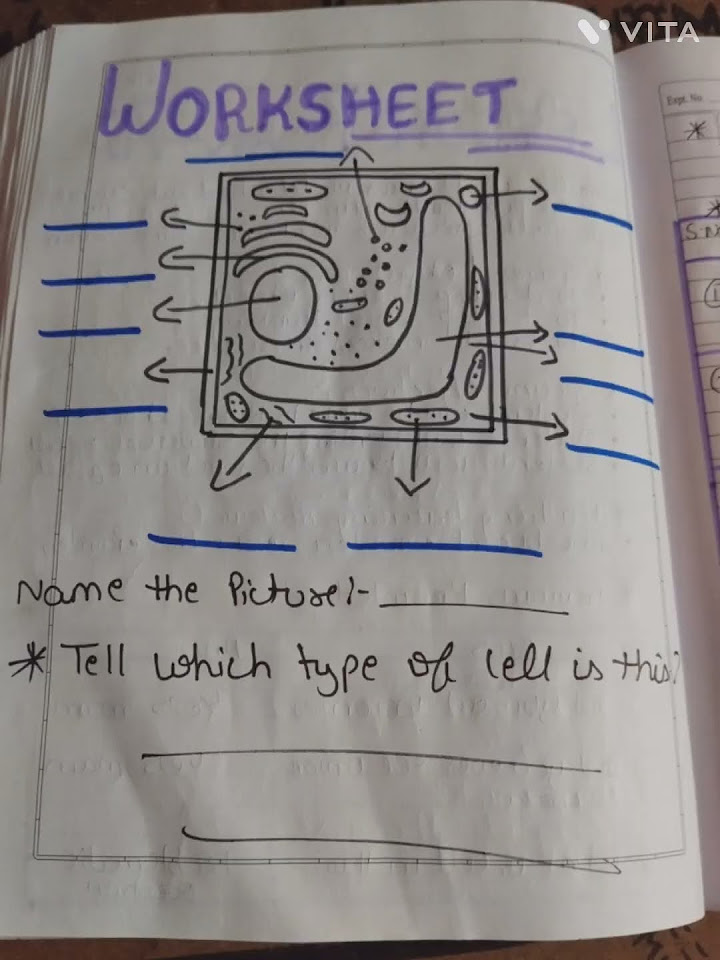 VITA
WORKSHEET
Expt. No.
S.N
Name the Picture:-
* Tell which type of cell is this?